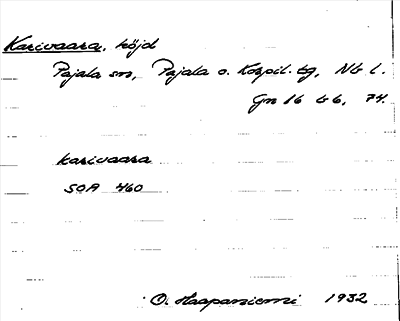 Karivaara, höjd
Pajala sn, Pajala o. Korpil. tg, Nb l.
Gn 16 b 6, 74.
karivaara
SOA 460
O. Haapaniemi 1932